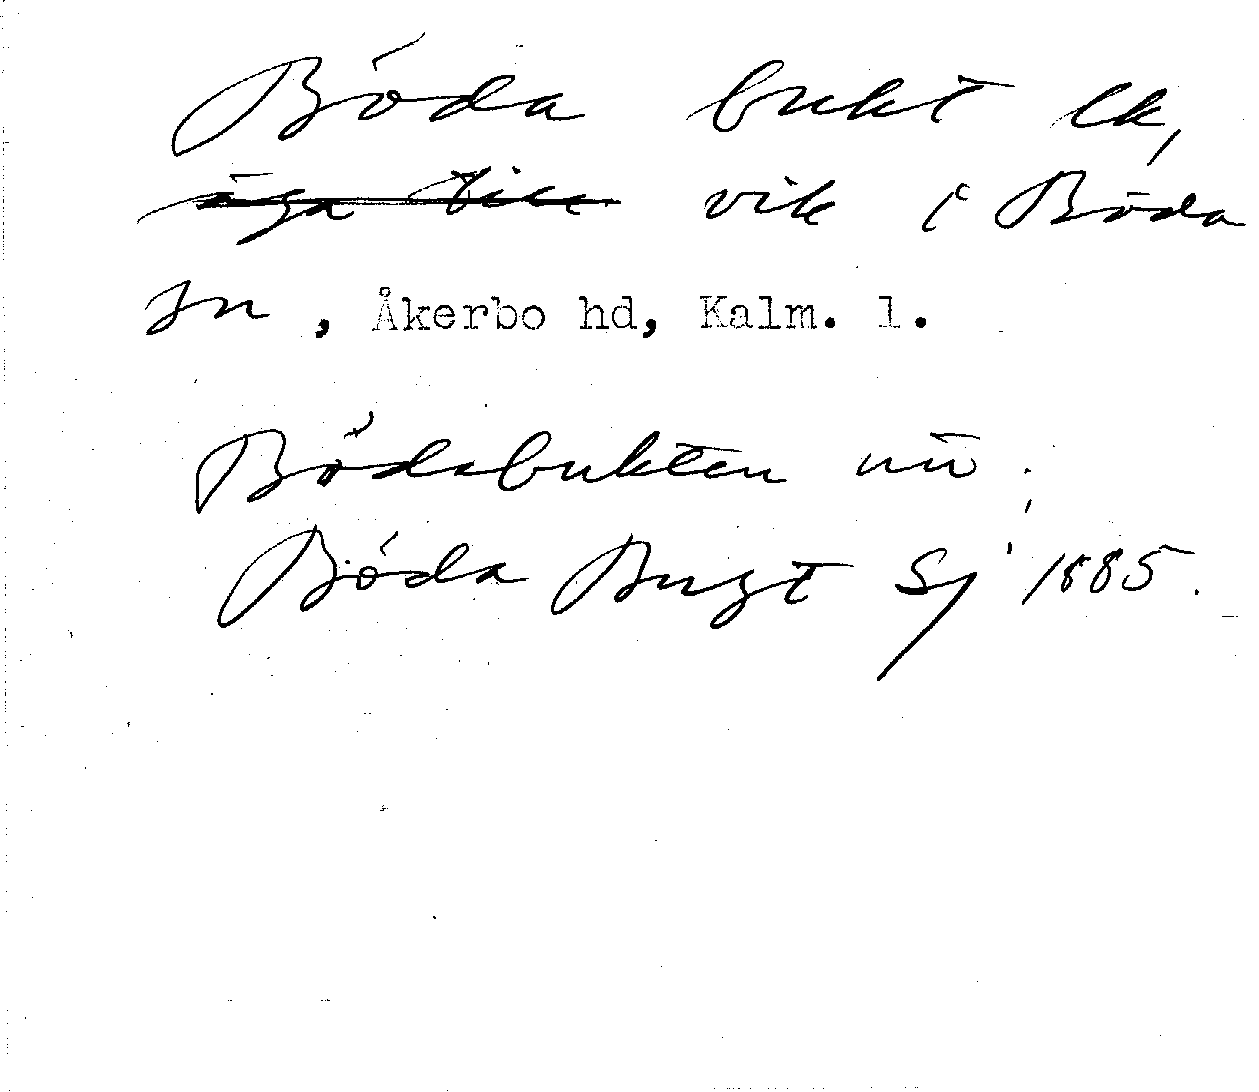 Böda bukt ek,
äga till vik i Böda
sn, Åkerbo hd, Kalm. l.
Bödabukten
Böda Bugt Sj 1885.